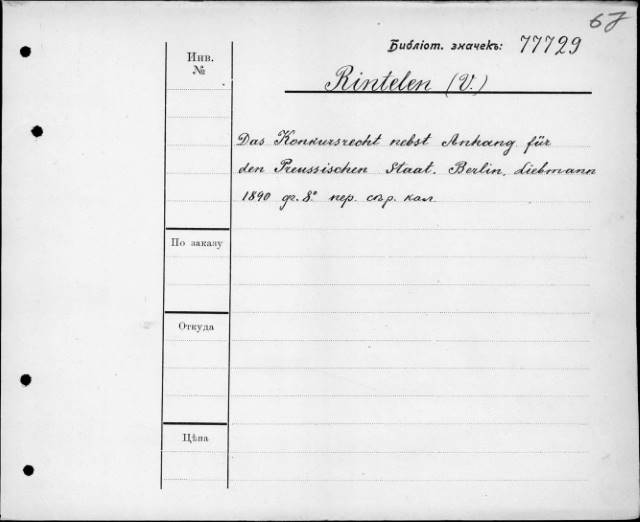 67
Библіот. значекъ: 77729
Инв.
№
Rintelen (V.)
Das Konkursrecht nebst Anhang für
den Preussischen Staat. Berlin, Liebmann
1890 gr. 8° пер. сѣр. кал.
По заказу
Откуда
Цѣна